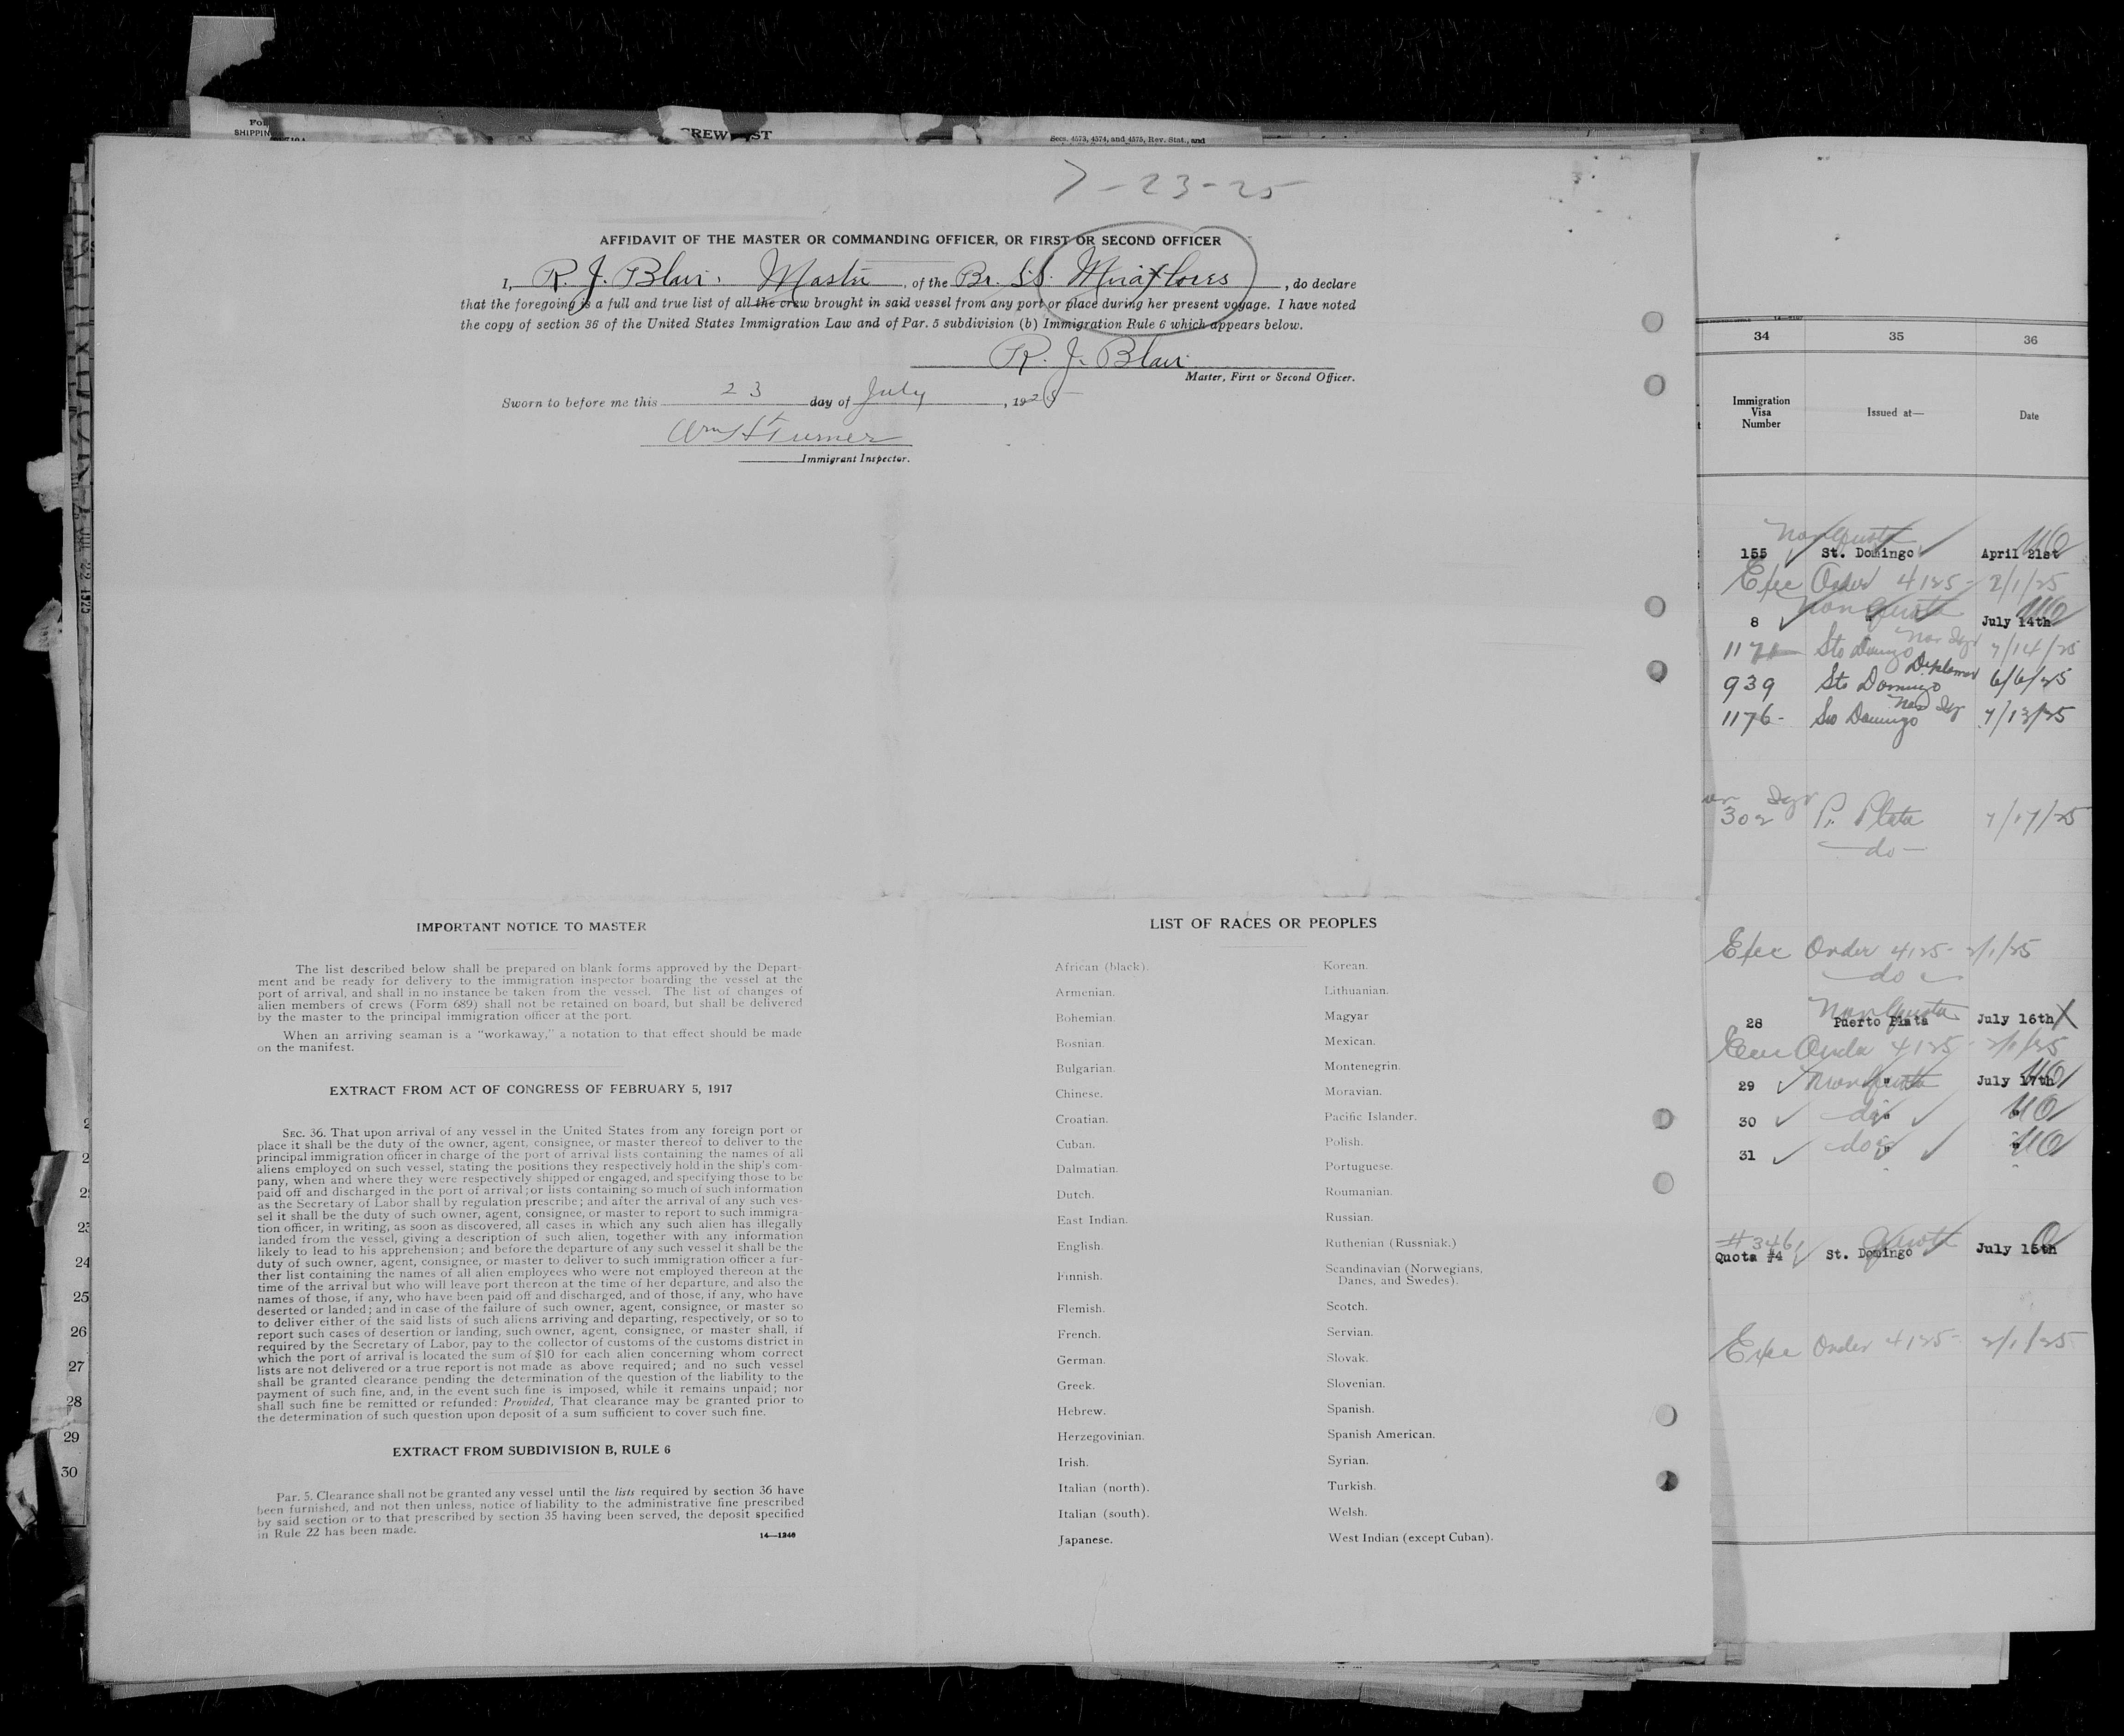 CREW
ST
Secs. 4573, 4574, and 4575, Rev. Stat., and
7-23-25
AFFIDAVIT OF THE MASTER OR COMMANDING OFFICER, OR FIRST OR SECOND OFFICER
I, R. J. Blair, Master, of the Br. S.S. Miraflores, do declare
that the foregoing is a full and true list of all the crew brought in said vessel from any port or place during her present voyage. I have noted
the copy of section 36 of the United States Immigration Law and of Par. 5 subdivision (b) Immigration Rule 6 which appears below.
R. J. Blair
Master, First or Second Officer.
Sworn to before me this 23 day of July, 1925
Wm H Turner
Immigrant Inspector.
IMPORTANT NOTICE TO MASTER
The list described below shall be prepared on blank forms approved by the Depart-
ment and be ready for delivery to the immigration inspector boarding the vessel at the
port of arrival, and shall in no instance be taken from the vessel. The list of changes of
alien members of crews (Form 689) shall not be retained on board, but shall be delivered
by the master to the principal immigration officer at the port.
When an arriving seaman is a "workaway," a notation to that effect should be made
on the manifest.
EXTRACT FROM ACT OF CONGRESS OF FEBRUARY 5, 1917
SEC. 36. That upon arrival of any vessel in the United States from any foreign port or
place it shall be the duty of the owner, agent, consignee, or master thereof to deliver to the
principal immigration officer in charge of the port of arrival lists containing the names of all
aliens employed on such vessel, stating the positions they respectively hold in the ship's com-
pany, when and where they were respectively shipped or engaged, and specifying those to be
paid off and discharged in the port of arrival; or lists containing so much of such information
as the Secretary of Labor shall by regulation prescribe; and after the arrival of any such ves-
sel it shall be the duty of such owner, agent, consignee, or master to report to such immigra-
tion officer, in writing, as soon as discovered, all cases in which any such alien has illegally
landed from the vessel, giving a description of such alien, together with any information
likely to lead to his apprehension; and before the departure of any such vessel it shall be the
duty of such owner, agent, consignee, or master to deliver to such immigration officer a fur-
ther list containing the names of all alien employees who were not employed thereon at the
time of the arrival but who will leave port thereon at the time of her departure, and also the
names of those, if any, who have been paid off and discharged, and of those, if any, who have
deserted or landed; and in case of the failure of such owner, agent, consignee, or master so
to deliver either of the said lists of such aliens arriving and departing, respectively, or so to
report such cases of desertion or landing, such owner, agent, consignee, or master shall, if
required by the Secretary of Labor, pay to the collector of customs of the customs district in
which the port of arrival is located the sum of $10 for each alien concerning whom correct
lists are not delivered or a true report is not made as above required; and no such vessel
shall be granted clearance pending the determination of the question of the liability to the
payment of such fine, and, in the event such fine is imposed, while it remains unpaid; nor
shall such fine be remitted or refunded: Provided, That clearance may be granted prior to
the determination of such question upon deposit of a sum sufficient to cover such fine.
EXTRACT FROM SUBDIVISION B, RULE 6
Par. 5. Clearance shall not be granted any vessel until the lists required by section 36 have
been furnished, and not then unless, notice of liability to the administrative fine prescribed
by said section or to that prescribed by section 35 having been served, the deposit specified
in Rule 22 has been made.
14—1240
LIST OF RACES OR PEOPLES
African (black).
Armenian.
Bohemian.
Bosnian.
Bulgarian.
Chinese.
Croatian.
Cuban.
Dalmatian.
Dutch.
East Indian.
English.
Finnish.
Flemish.
French.
German.
Greek.
Hebrew.
Herzegovinian.
Irish.
Italian (north).
Italian (south).
Japanese.
Korean.
Lithuanian.
Magyar
Mexican.
Montenegrin.
Moravian.
Pacific Islander.
Polish.
Portuguese.
Roumanian.
Russian.
Ruthenian (Russniak.)
Scandinavian (Norwegians,
Danes, and Swedes).
Scotch.
Servian.
Slovak.
Slovenian.
Spanish.
Spanish American.
Syrian.
Turkish.
Welsh.
West Indian (except Cuban).
34 35 36
Immigration
Visa
Number
Issued at—
Date
Non Quota
155 St. Domingo April 21st
Exec Order 4125- 2/1/25
Non Quota
8 " July 14th
1171 Sto Domingo 7/14/25
Diplomat
939 Sto Domingo 6/6/25
1176- Sto Domingo 7/13/25
302 P. Plata 7/17/25
do
Exec Order 4125- 2/1/25
do
Non Quota
28 Puerto Plata July 16th
Exec Order 4125 - 2/1/25
29 Non Quota July 17th
30 do "
31 do "
#346 Quota
Quota #4 St. Domingo July 15th
Exec Order 4125- 2/1/25
23
24
25
26
27
28
29
30